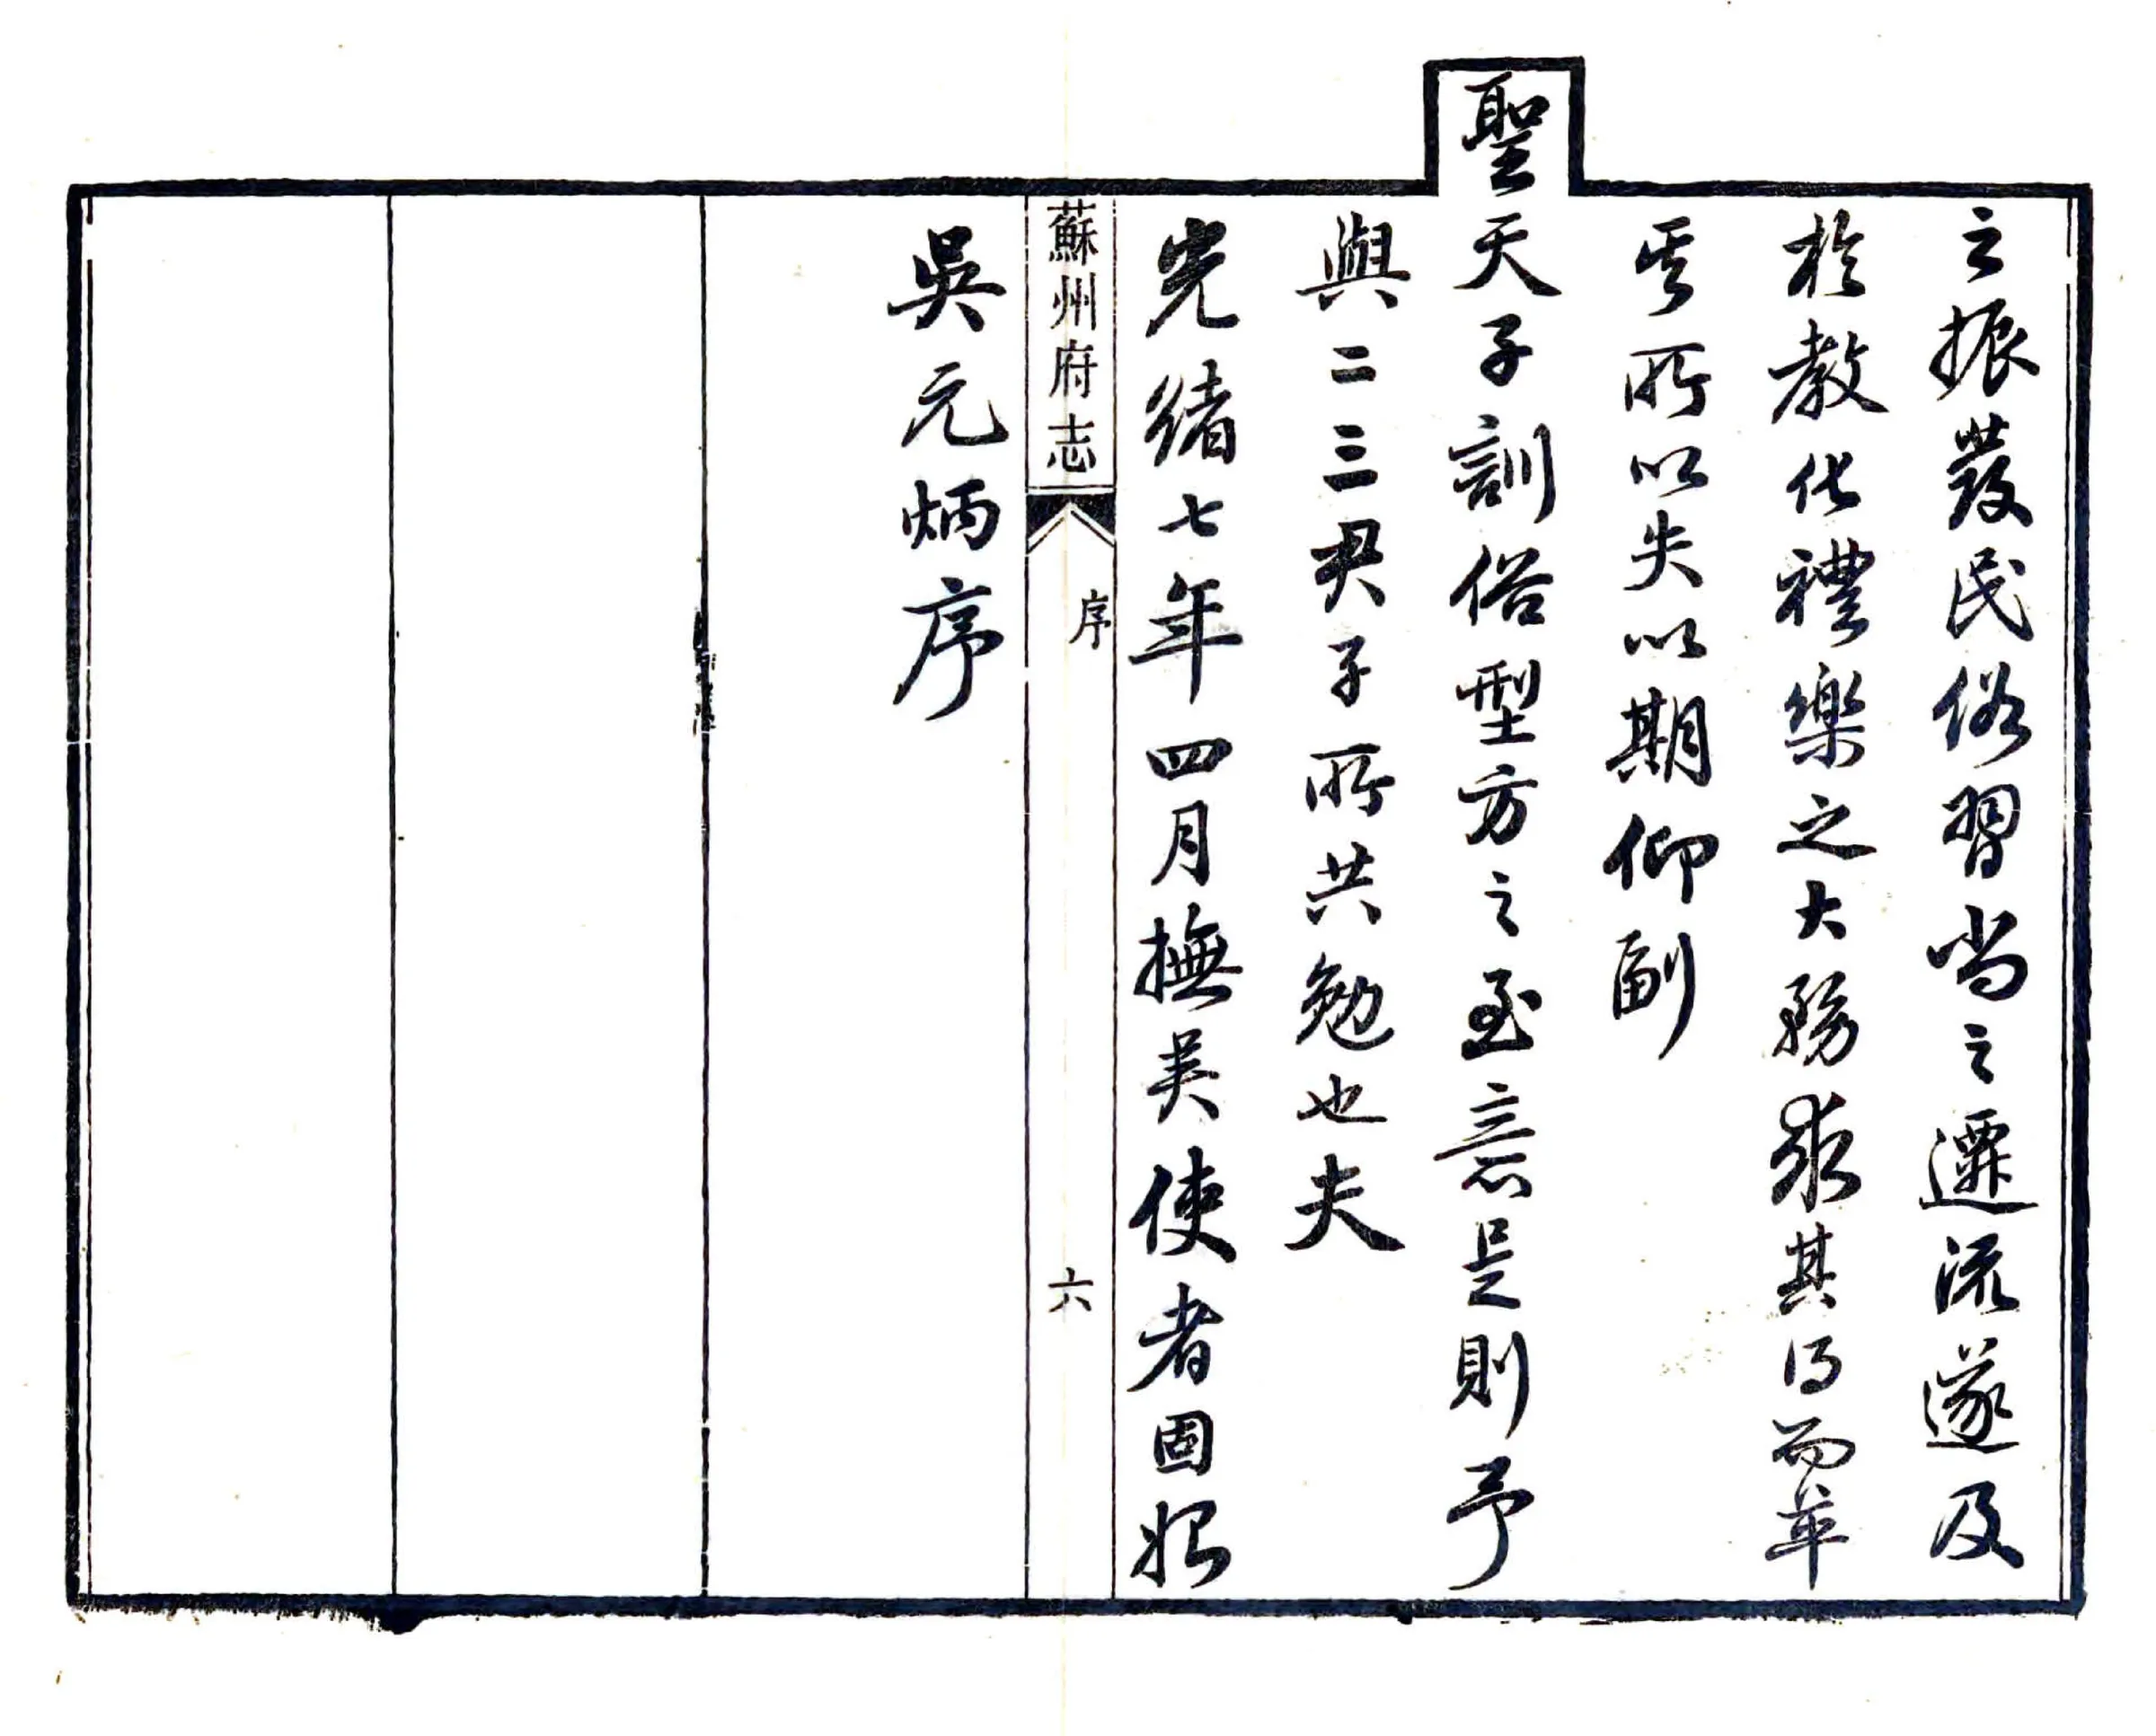 之振發民俗習尚之遷流遂及
於教化禮樂之大務求其得而革
其所以失以期仰副
聖天子訓俗型方之至意是則予
與二三君子所共勉也夫
光緒七年四月撫吳使者固始
蘇州府志 序 六
吳元炳序